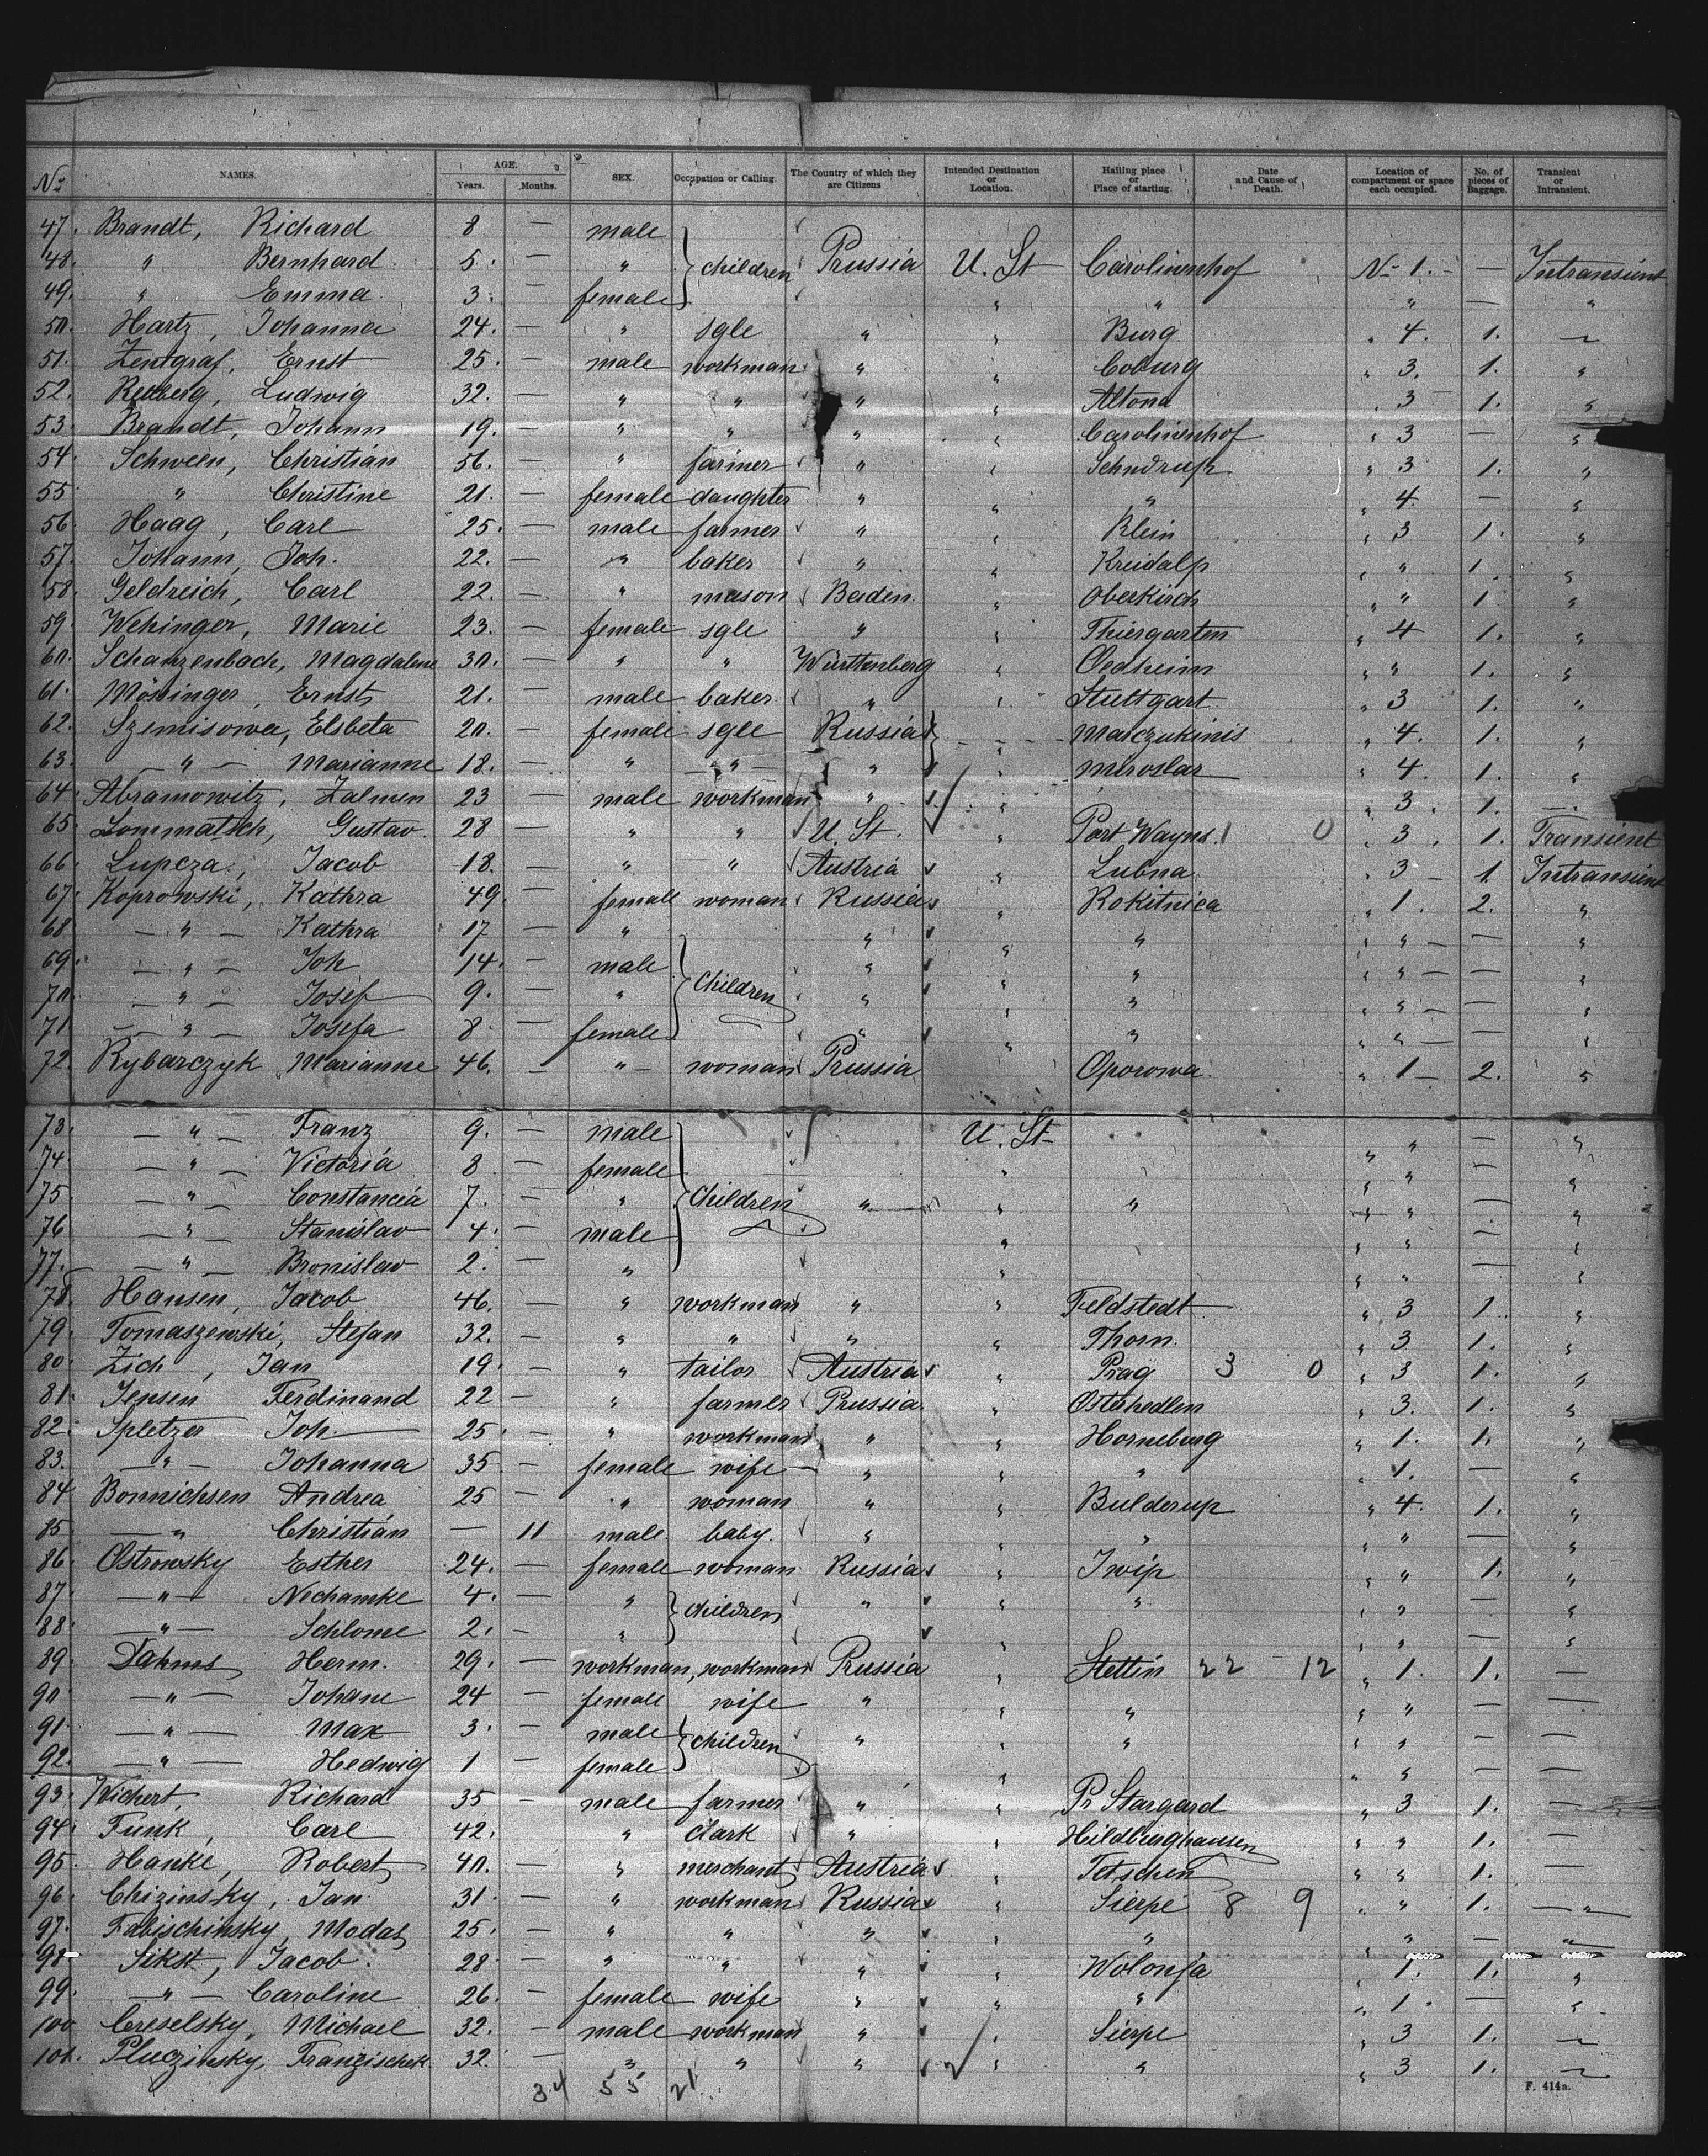 No NAMES. AGE. Years. Months. SEX. Occupation or Calling. The Country of which they are Citizens Intended Destination or Location. Hailing place or Place of starting. Date and Cause of Death. Location of compartment or space each occupied. No. of pieces of Baggage. Transient or Intransient.
47. Brandt, Richard 8 — male
48. " Bernhard 5. — " children Prussia U. St Carolinenhof No 1. — Intransient
49. " Emma 3. — female " " " — "
50. Hartz, Johanna 24. — " sgle " " Burg " 4. 1. "
51. Zentgraf, Ernst 25. — male workman " " Coburg " 3. 1. "
52. Rettberg, Ludwig 32. — " " " " Altona " 3 1. "
53. Brandt, Johann 19. — " " " " Carolinenhof " 3 — "
54. Schween, Christian 56. — " farmer " " " 3 1. "
55 " Christine 21. — female daughter " " " " 4. — "
56. Haag, Carl 25. — male farmer " " Klein " 3 1. "
57. Johann, Joh. 22. — " baker " " Kreidalp " " 1. "
58. Geldreich, Carl 22. — " mason Baden. " Oberkirch " " 1 "
59. Wehinger, Marie 23. — female sgle " " Thiergarten " 4 1. "
60. Schanzenbach, Magdalene 30. — " " Württenberg " Oedheim " " 1. "
61. Mössinger, Ernst 21. — male baker. " " Stuttgart " 3 1. "
62. Szemisowa, Elsbeta 20. — female sgle Russia " Marczukinis " 4. 1. "
63. — " — Marianne 18. — " — " — " " Miroslar " 4. 1. "
64. Abramowitz, Zalmen 23 — male workman " " " 3. 1. —
65. Lommatsch, Gustav. 28 — " " U. St. " Port Wayns. 1 0 " 3. 1. Transient
66. Lupcza, Jacob 18. — " " Austria " Lubna " 3 — 1 Intransient
67. Koprowski, Kathra 49. — female woman Russia " Rokitnica " 1. 2. "
68 — " — Kathra 17 — " " " " " " — — "
69. — " — Joh 14. — male " " " " " — — "
70. — " — Josef 9. — " Children " " " " " — — "
71 — " — Josefa 8. — female " " " " " — — "
72. Rybarczyk Marianne 46. — " — woman Prussia Oporowa " 1 — 2. "
73. — " — Franz 9. — male U. St " " — "
74. — " — Victoria 8 — female " " " — "
75. — " — Constancia 7. — " Children " " " " " — "
76 — " — Stanislav 4. — male " " " — "
77. — " — Bronislav 2. — " " " " — "
78. Hansen, Jacob 46. — " workman " " Feldstedt " 3 1. "
79. Tomaszewski, Stefan 32. — " " " " Thorn. " 3 1. "
80. Zich, Jan 19. — " tailor Austria " Prag 3 0 " 3 1. "
81. Jensen Ferdinand 22 — " farmer Prussia " " 3. 1. "
82. Spletzer Joh. 25. — " workman " " Horneburg " 1. 1. "
83. — " — Johanna 35 — female wife — " " " " 1. — "
84 Bonnichsen Andrea 25 — " woman " " Bulderup " 4. 1. "
85. — " Christian — 11 male baby. " " " " " — "
86. Ostrowsky Esther 24. — female woman Russia " " " 1. "
87 — " — Nechamke 4. — " children " " " " " — "
88. — " — Schlome 2. — " " " " — "
89. Dahms Herm. 29. — workman, workman Prussia " Stettin 22 12 " 1. 1. —
90. — " — Johane 24 — female wife " " " " " — —
91. — " — Max 3. — male children " " " " " — —
92. — " — Hedwig 1 — female " " " — —
93. Wichert, Richard 35 — male farmer " " Pr Stargard " 3 1. —
94. Funk, Carl 42. — " clark " " Hildburghausen " " 1. —
95. Hanke, Robert 40. — " merchant Austria " Tetschen " " 1. —
96. Chizinsky, Jan 31. — " workman Russia " Sierpe 8 9 " " 1. — " —
97. Fabischinsky, Modas 25. — " " " " " " — — " —
98. Sikst, Jacob. 28 — " " " " " 1. 1. "
99. — " — Caroline 26. — female wife " " " " 1. — "
100 Creselsky, Michael 32. — male workman " " Sierpe " 3 1. "
101. Pluczinsky, Franzischek 32. — " " " " " " 3 1. "
34 55 21
F. 414a.